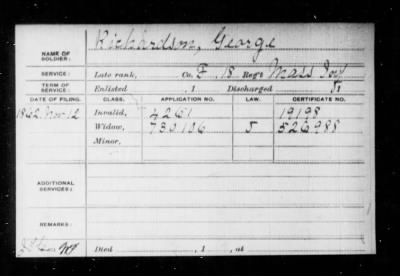 NAME OF SOLDIER: Richardson, George
SERVICE: Late rank, Co. F, 18 Reg't Mass Inf
TERM OF SERVICE: Enlisted , 1 Discharged , 1
DATE OF FILING. CLASS. APPLICATION NO. LAW. CERTIFICATE NO.
1862, Nov 12 Invalid, 4261 19198
Widow, 730,106 J 526988
Minor,
ADDITIONAL SERVICES:
REMARKS:
Died , 1 , at